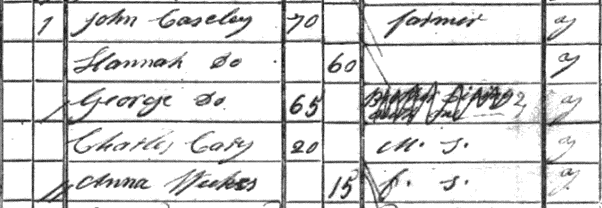 1 John Caseley 70 farmer y
Hannah Do 60 y
George Do 65 y
Charles Cary 20 M. S. y
Anna Weekes 15 f. S. y